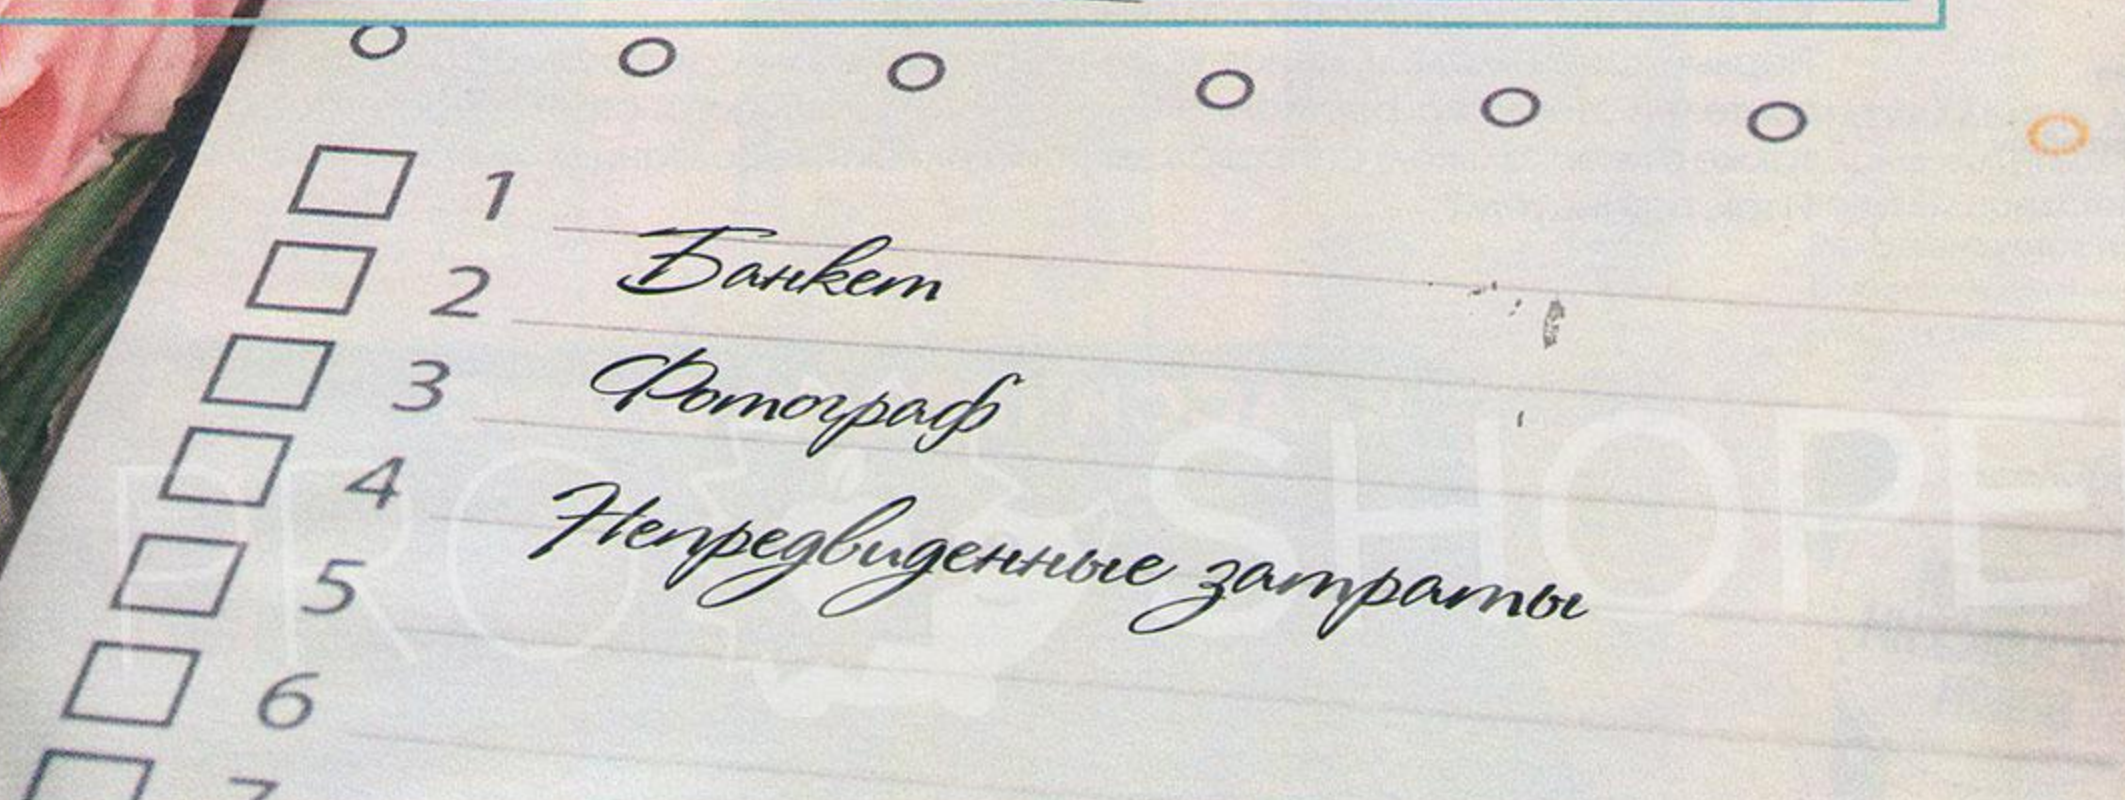 1
2 Банкет
3 Фотограф
4 Непредвиденные затраты
5
6
7
PRO SHOPE